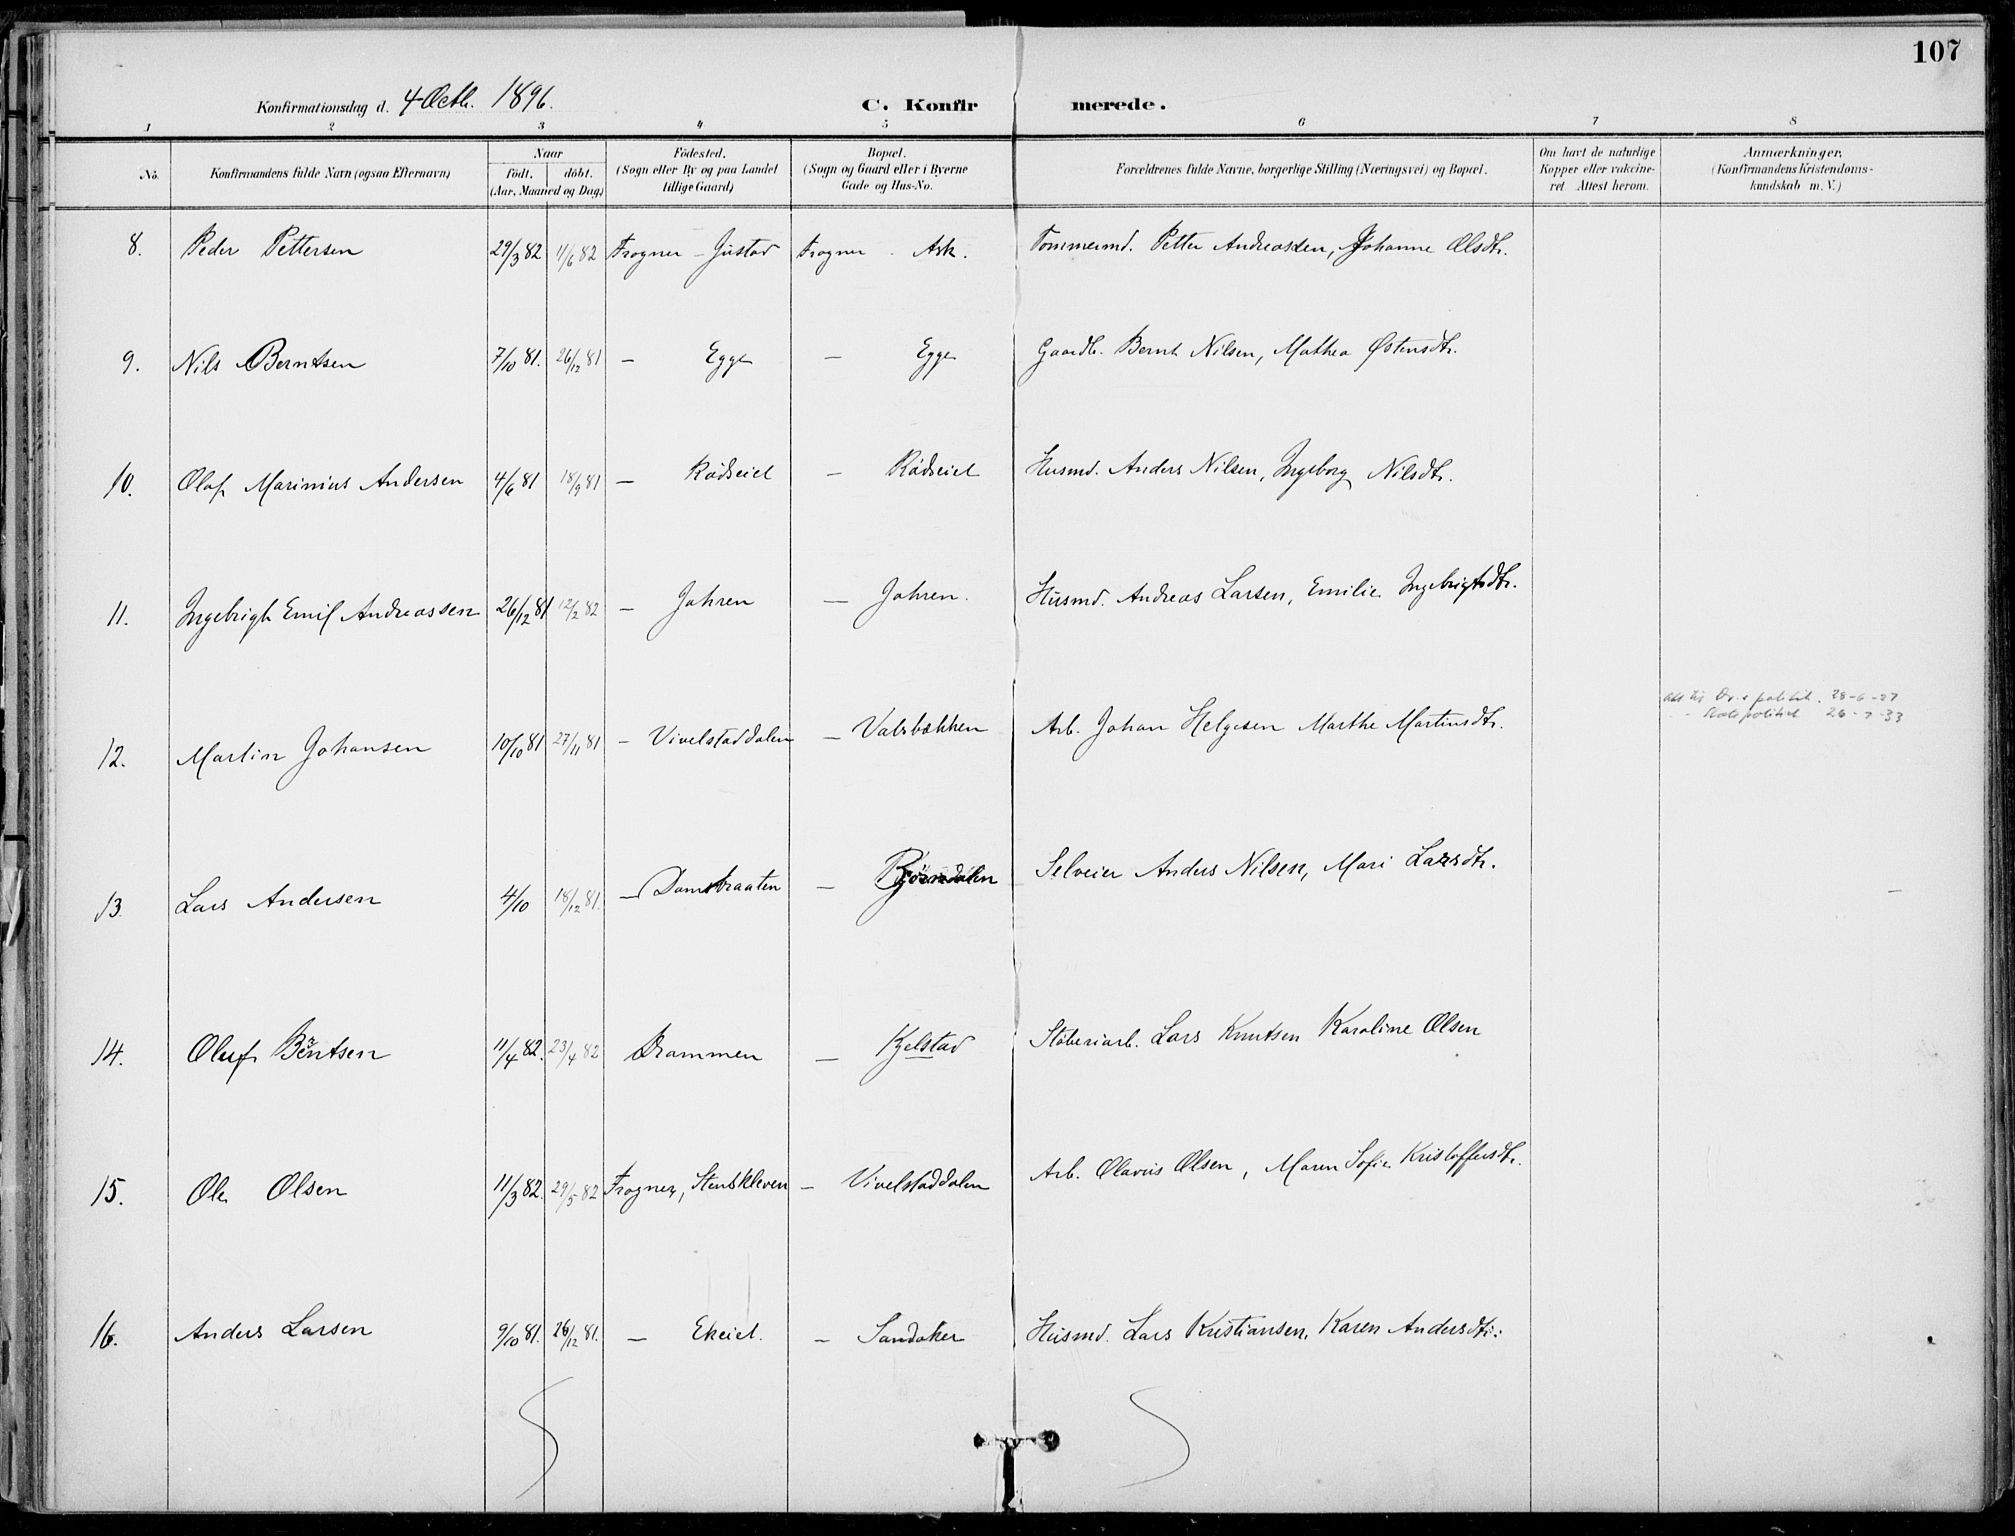 107
Konfirmationsdag d. 4 Octb. 1896.
C. Konfirmerede.
1 2 3 4 5 6 7 8
No. | Konfirmandens fulde Navn (ogsaa Efternavn) | Naar födt. döbt. (Aar, Maaned og Dag) | Födested. (Sogn eller By og paa Landet tillige Gaard) | Bopæl. (Sogn og Gaard eller i Byerne Gade og Hus-No. | Forældrenes fulde Navne, borgerlige Stilling (Næringsvei) og Bopæl. | Om havt de naturlige Kopper eller vakcineret. Attest herom. | Anmærkninger, (Konfirmandens Kristendomskundskab m. V.)
8. Peder Pettersen 29/3 82 11/6 82 Frogner - Gustad Frogner - Ask. Tømmermd. Petter Andreassen, Johanne Olsdtr.
9. Nils Berntsen 7/10 81. 26/12 81 — Egge — Egge Gaardb. Bernt Nilsen, Mathea Østensdtr.
10. Olaf Marinius Andersen 4/6 81 18/9 81 — Rödseiet — Rödseiet Husmd. Anders Nilsen, Ingeborg Nilsdtr.
11. Ingebrigt Emil Andreassen 26/12 81 12/2 82 — Jahren — Jahren. Husmd. Andreas Larsen, Emilie Ingebrigtsdtr.
12. Martin Johansen 10/10 81 27/11 81 — Vivelstaddalen — Valsbækken Arb. Johan Helgesen Marthe Martinsdtr. 28-6-27
26-7-33
13. Lars Andersen 4/10 18/12 81. — Dambraaten — Bjørndalen Selveier Anders Nilsen, Mari Larsdtr. —
14. Oluf Bentsen 11/4 82. 23/4 82 Drammen — Kjelstad Støberiarb. Lars Knutsen Karoline Olsen
15. Ole Olsen 11/3 82. 29/5 82 Frogner, Stenskleven — Vivelstaddalen Arb. Olavus Olsen, Maren Sofie Kristoffersdtr.
16. Anders Larsen 9/10 81. 26/12 81. — Ekeiet. — Sandaker Husmd. Lars Kristiansen, Karen Andersdtr.